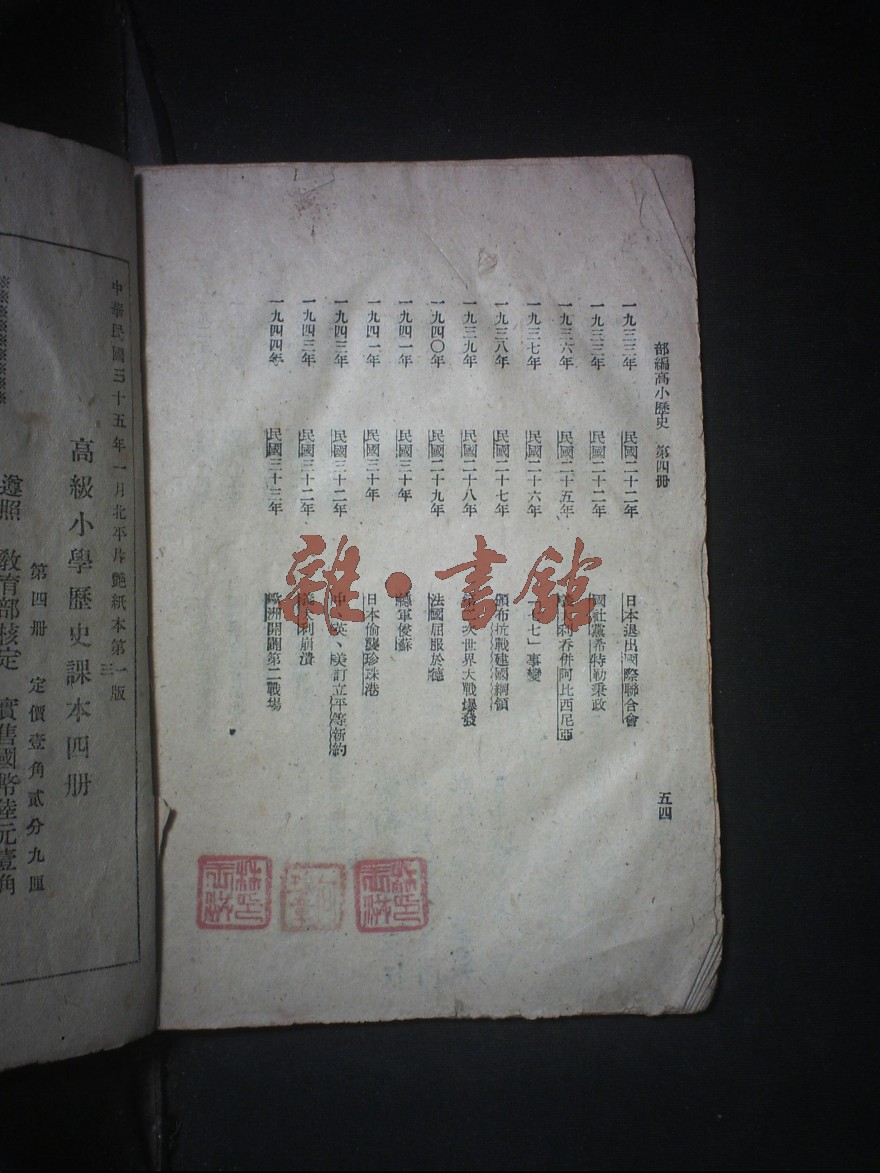 部編高小歷史 第四册
五四
一九三三年 民國二十二年 日本退出國際聯合會
一九三三年 民國二十二年 國社黨希特勒秉政
一九三六年 民國二十五年 義大利吞併阿比西尼亞
一九三七年 民國二十六年 「七七」事變
一九三八年 民國二十七年 頒布抗戰建國綱領
一九三九年 民國二十八年 第二次世界大戰爆發
一九四〇年 民國二十九年 法國屈服於德
一九四一年 民國三十年 德軍侵蘇
一九四一年 民國三十年 日本偷襲珍珠港
一九四三年 民國三十二年 中、英、美訂立平等新約
一九四三年 民國三十二年 義大利崩潰
一九四四年 民國三十三年 歐洲開闢第二戰場
雜·書館
中華民國三十五年一月北平
紙本第一版
高級小學歷史課本四册
第四册 定價壹角貳分九厘
遵照 教育部核定 實售國幣陸元壹角